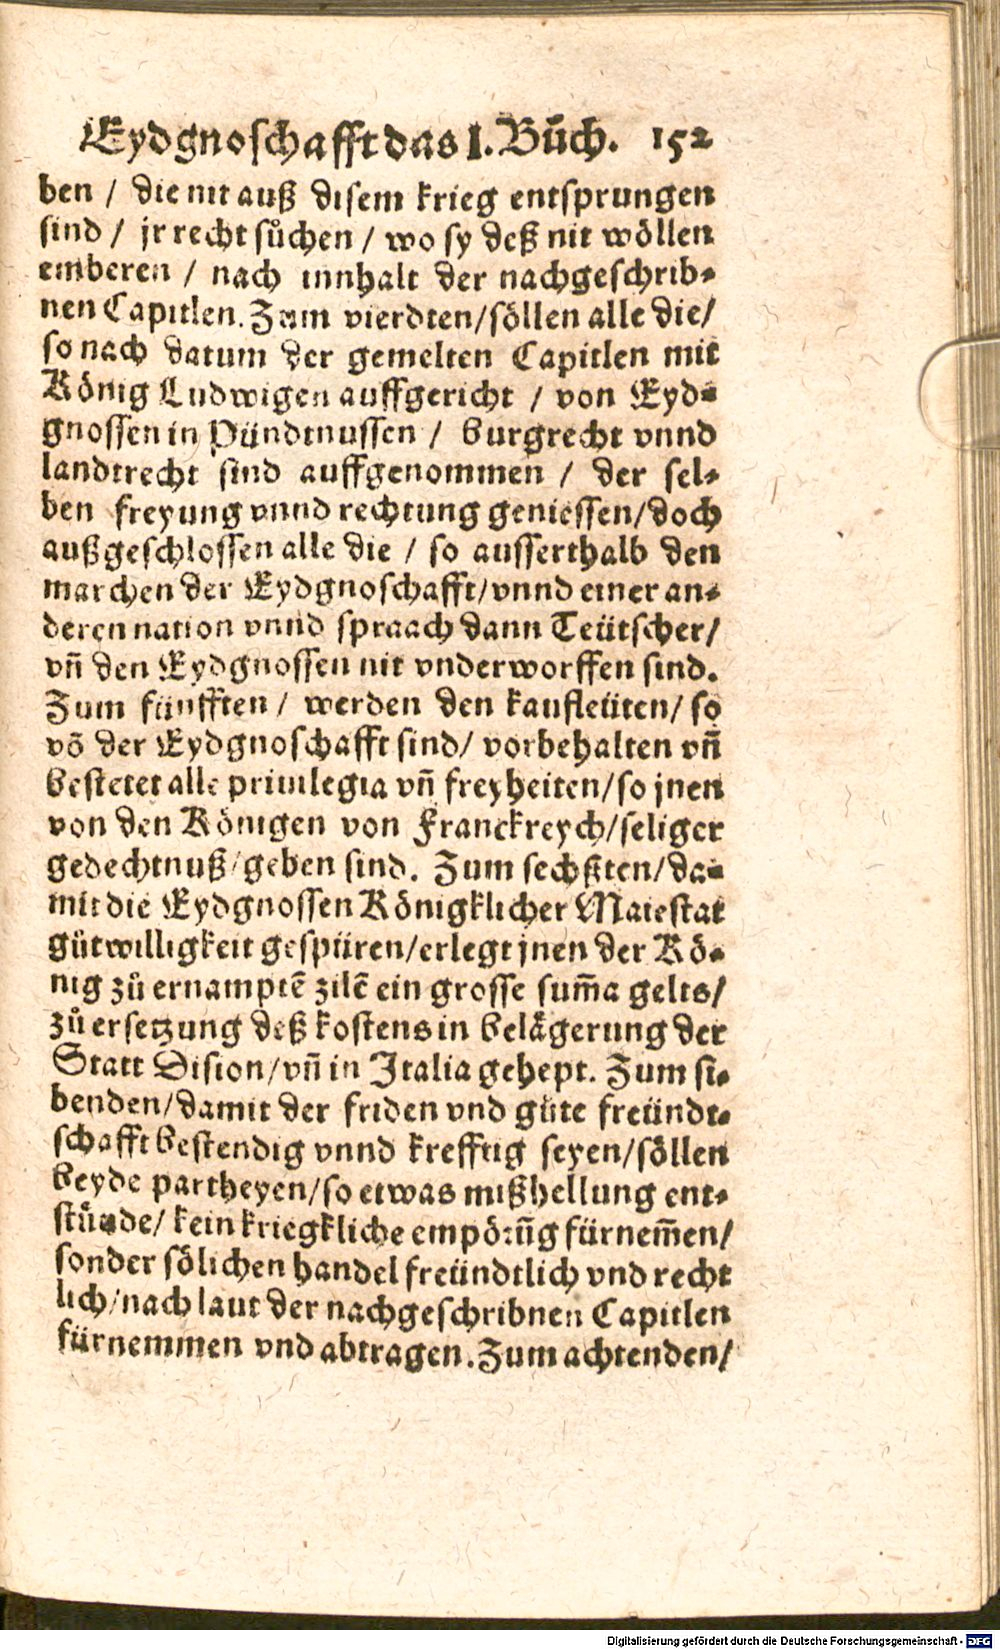 Eydgnoschafft das I. Bůch. 152
ben / die nit auß disem krieg entsprungen
sind / jr recht sůchen / wo sy deß nit wöllen
emberen / nach innhalt der nachgeschrib⸗
nen Capitlen. Zum vierdten/söllen alle die/
so nach datum der gemelten Capitlen mit
König Ludwigen auffgericht / von Eyd⸗
gnossen in Pündtnussen / burgrecht vnnd
landtrecht sind auffgenommen / der sel⸗
ben freyung vnnd rechtung geniessen/doch
außgeschlossen alle die / so ausserthalb den
marchen der Eydgnoschafft/vnnd einer an⸗
deren nation vnnd spraach dann Teütscher/
vñ den Eydgnossen nit vnderworffen sind.
Zum fünfften / werden den kaufleüten/ so
võ der Eydgnoschafft sind/ vorbehalten vñ
bestetet alle priuilegia vñ freyheiten/so jnen
von den Königen von Franckreych/seliger
gedechtnuß/geben sind. Zum sechßten/da⸗
mit die Eydgnossen Königklicher Maiestat
gůtwilligkeit gespüren/erlegt jnen der Kö⸗
nig zů ernamptẽ zilẽ ein grosse sum̃a gelts/
zů ersetzung deß kostens in belägerung der
Statt Dision/vñ in Italia gehept. Zum si⸗
benden/damit der friden vnd gůte freündt⸗
schafft bestendig vnnd krefftig seyen/söllen
beyde partheyen/so etwas mißhellung ent⸗
stůnde/ kein kriegkliche empörũg fürnem̃en/
sonder sölichen handel freündtlich vnd recht
lich/nach laut der nachgeschribnen Capitlen
fürnemmen vnd abtragen. Zum achtenden/
Digitalisierung gefördert durch die Deutsche Forschungsgemeinschaft - DFG